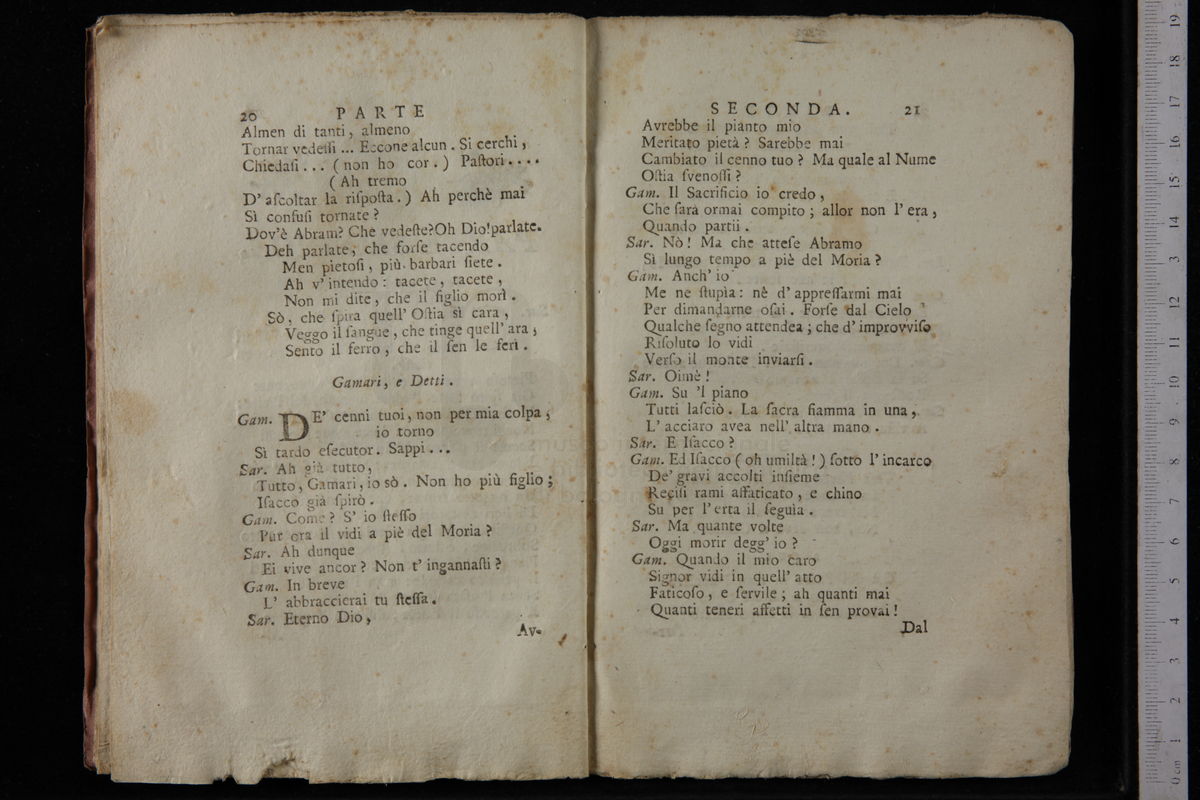 20 PARTE
Almen di tanti, almeno
Tornar vedeſſi ... Eccone alcun. Si cerchi,
Chiedaſi... (non ho cor.) Paſtori....
(Ah tremo
D' aſcoltar la riſpoſta.) Ah perchè mai
Sì confuſi tornate?
Dov'è Abram? Che vedeſte? Oh Dio! parlate.
Deh parlate, che forſe tacendo
Men pietoſi, più barbari ſiete.
Ah v' intendo: tacete, tacete,
Non mi dite, che il figlio morì.
Sò, che ſpira quell' Oſtia sì cara,
Veggo il ſangue, che tinge quell' ara,
Sento il ferro, che il ſen le ferì.
Gamari, e Detti.
Gam. DE' cenni tuoi, non per mia colpa,
io torno
Sì tardo eſecutor. Sappi...
Sar. Ah già tutto,
Tutto, Gamari, io sò. Non ho più figlio;
Iſacco già ſpirò.
Gam. Come? S' io ſteſſo
Pur ora il vidi a piè del Moria?
Sar. Ah dunque
Ei vive ancor? Non t' ingannaſti?
Gam. In breve
L' abbraccierai tu ſteſſa.
Sar. Eterno Dio,
Av-
SECONDA. 21
Avrebbe il pianto mio
Meritato pietà? Sarebbe mai
Cambiato il cenno tuo? Ma quale al Nume
Oſtia ſvenoſſi?
Gam. Il Sacrificio io credo,
Che ſarà ormai compito; allor non l' era,
Quando partii.
Sar. Nò! Ma che atteſe Abramo
Sì lungo tempo a piè del Moria?
Gam. Anch' io
Me ne ſtupìa: nè d' appreſſarmi mai
Per dimandarne oſai. Forſe dal Cielo
Qualche ſegno attendea; che d' improvviſo
Riſoluto lo vidi
Verſo il monte inviarſi.
Sar. Oimè!
Gam. Su 'l piano
Tutti laſciò. La ſacra fiamma in una,
L' acciaro avea nell' altra mano.
Sar. E Iſacco?
Gam. Ed Iſacco (oh umiltà!) ſotto l' incarco
De' gravi accolti inſieme
Reciſi rami affaticato, e chino
Su per l' erta il ſeguìa.
Sar. Ma quante volte
Oggi morir degg' io?
Gam. Quando il mio caro
Signor vidi in quell' atto
Faticoſo, e ſervile; ah quanti mai
Quanti teneri affetti in ſen provai!
Dal
0 cm 1 2 3 4 5 6 7 8 9 10 11 12 13 14 15 16 17 18 19